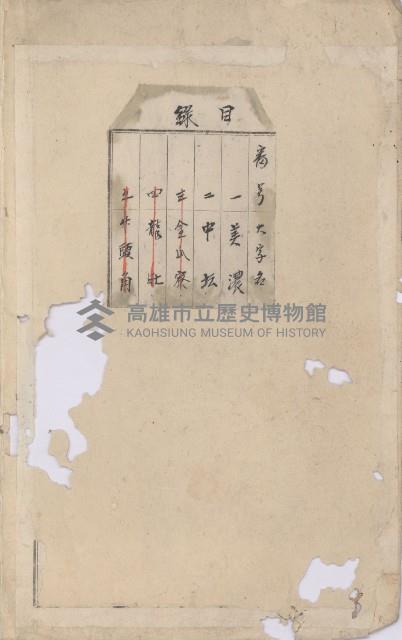 目錄
番号 大字名
一 美濃
二 中坛
三 金瓜寮
四 龍肚
五 竹頭角
高雄市立歷史博物館
KAOHSIUNG MUSEUM OF HISTORY